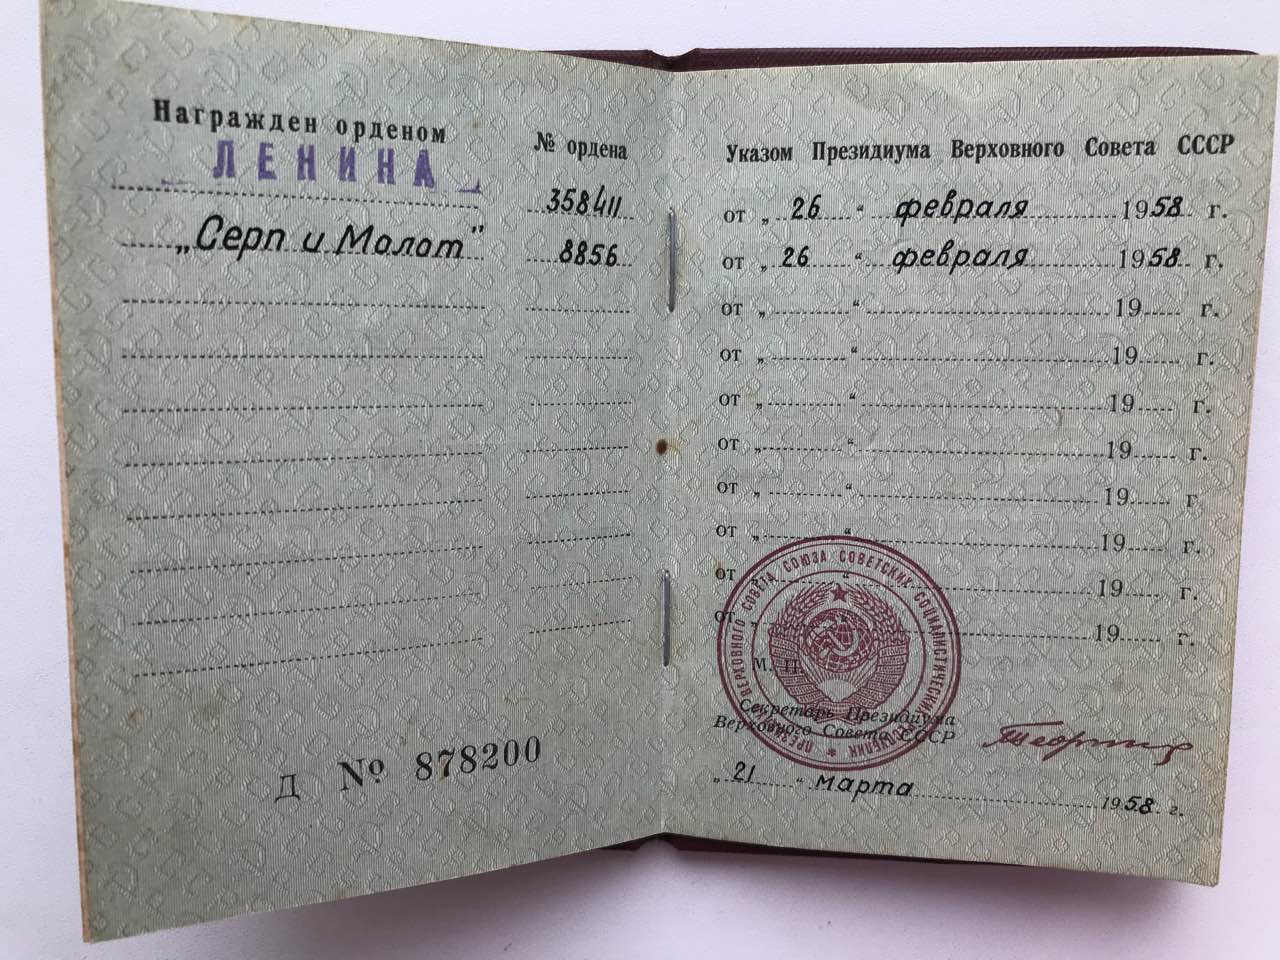 Награжден орденом
№ ордена
ЛЕНИНА
358411
„Серп и Молот"
8856
Д № 878200
Указом Президиума Верховного Совета СССР
от „ 26 “ февраля 1958 г.
от „ 26 “ февраля 1958 г.
от „ “ 19 г.
от „ “ 19 г.
от „ “ 19 г.
от „ “ 19 г.
от „ “ 19 г
от „ “ 19 г.
от „ “ 19 г.
от „ 19 г.
ПРЕЗИДИУМ ВЕРХОВНОГО СОВЕТА СОЮЗА СОВЕТСКИХ СОЦИАЛИСТИЧЕСКИХ РЕСПУБЛИК
М. П.
Секретарь Президиума
Верховного Совета СССР
„ 21 “ марта 1958 г.